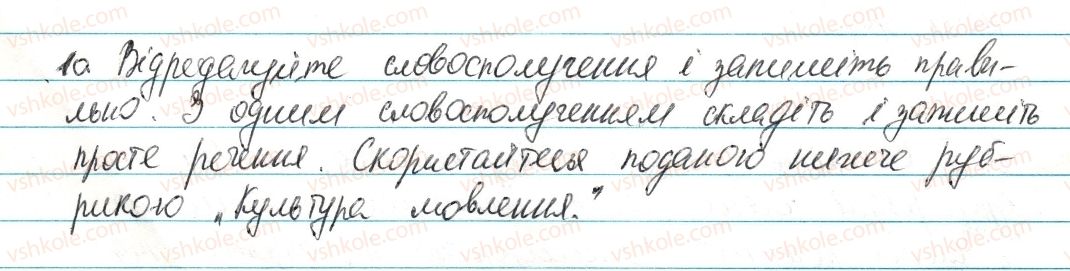 1а Відредагуйте словосполучення і запишіть прави-
льно. З одним словосполученням складіть і запишіть
просте речення. Скористайтеся поданою нижче руб-
рикою „Культура мовлення."